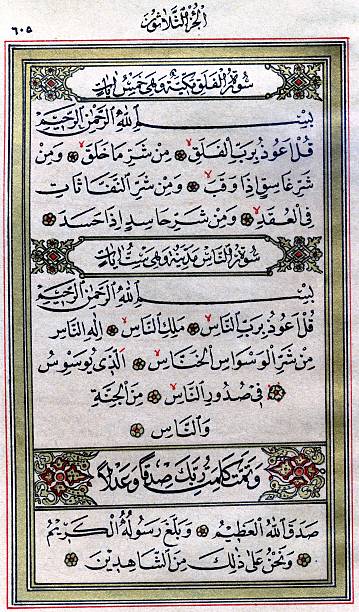 الجزء الثلاثون
٦٠٥
سورة الفلق مكية وهي خمس ايات
بِسْمِ اللّٰهِ الرَّحْمٰنِ الرَّحِيمِ
قُلْ اَعُوذُ بِرَبِّ الْفَلَقِ ۙ مِنْ شَرِّ مَا خَلَقَ ۙ وَمِنْ
شَرِّ غَاسِقٍ اِذَا وَقَبَ ۙ وَمِنْ شَرِّ النَّفَّاثَاتِ
فِي الْعُقَدِ ۙ وَمِنْ شَرِّ حَاسِدٍ اِذَا حَسَدَ
سورة الناس مدنية وهي ست ايات
بِسْمِ اللّٰهِ الرَّحْمٰنِ الرَّحِيمِ
قُلْ اَعُوذُ بِرَبِّ النَّاسِ ۙ مَلِكِ النَّاسِ ۙ اِلٰهِ النَّاسِ
مِنْ شَرِّ الْوَسْوَاسِ الْخَنَّاسِ ۙ اَلَّذِي يُوَسْوِسُ
فِي صُدُورِ النَّاسِ ۙ مِنَ الْجِنَّةِ
وَالنَّاسِ
وَتَمَّتْ كَلِمَتُ رَبِّكَ صِدْقًا وَعَدْلًا
صَدَقَ اللّٰهُ الْعَظِيمُ وَبَلَّغَ رَسُولُهُ الْكَرِيمُ
وَنَحْنُ عَلٰى ذٰلِكَ مِنَ الشَّاهِدِينَ